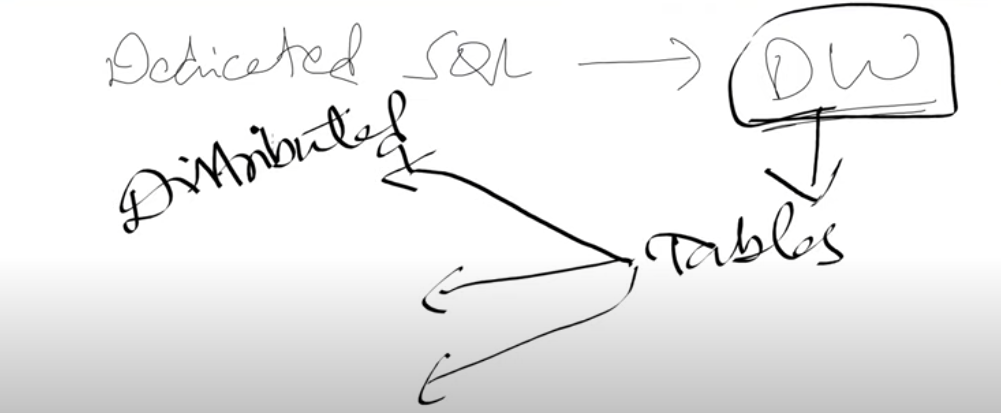 Dedicated SQL → DW
Distributed
Tables